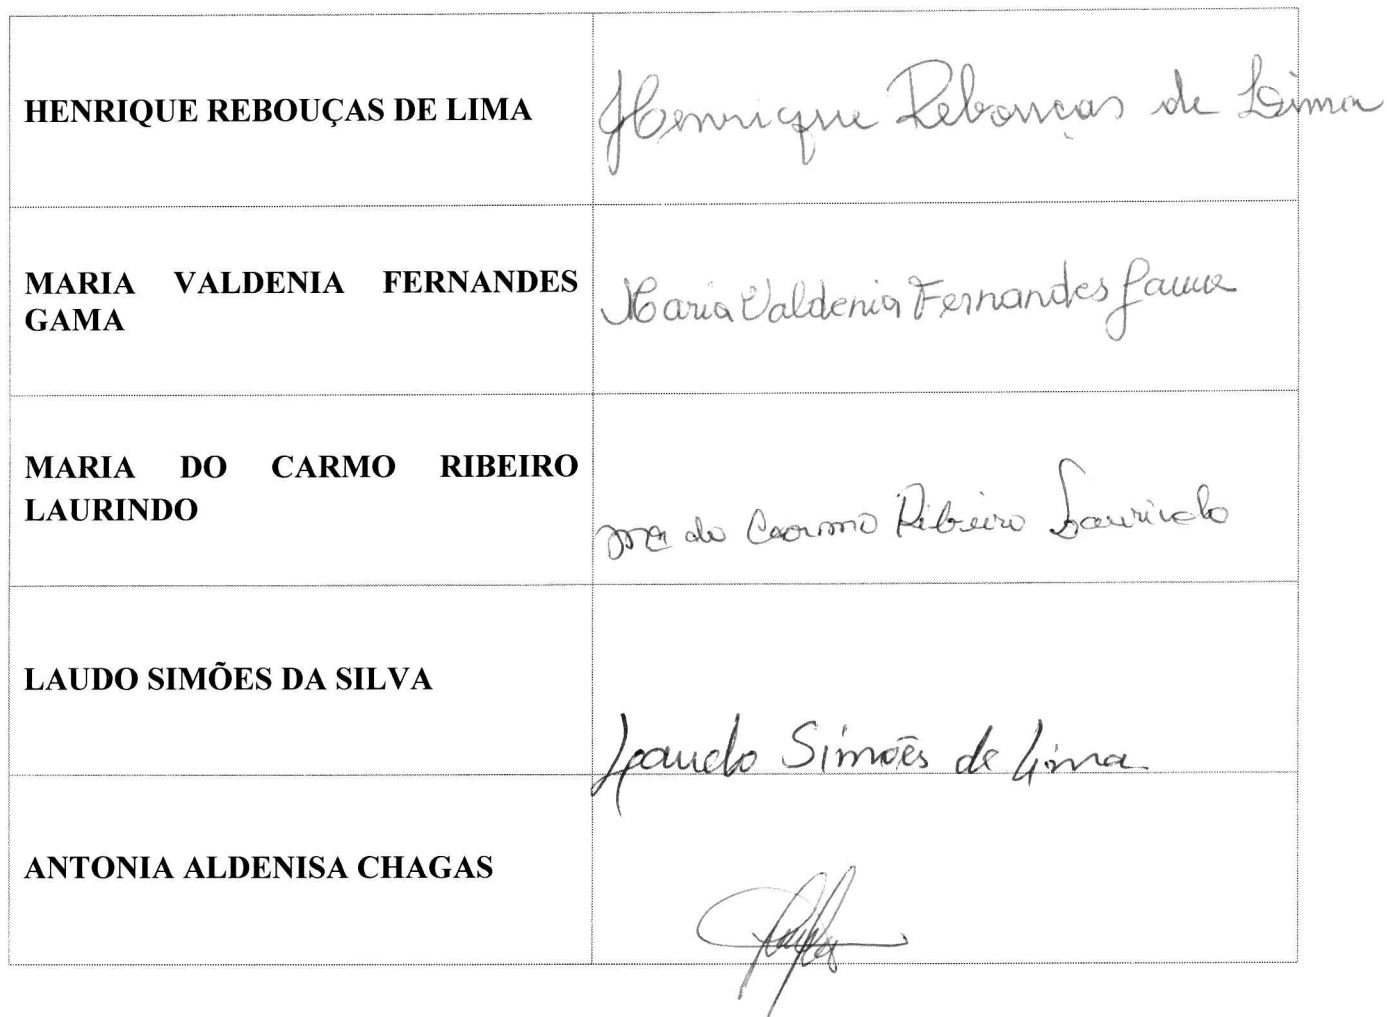 HENRIQUE REBOUÇAS DE LIMA
Henrique Rebouças de Lima
MARIA VALDENIA FERNANDES
GAMA
Maria Valdenia Fernandes Gama
MARIA DO CARMO RIBEIRO
LAURINDO
Mª do Carmo Ribeiro Laurindo
LAUDO SIMÕES DA SILVA
Laudo Simões de Lima
ANTONIA ALDENISA CHAGAS